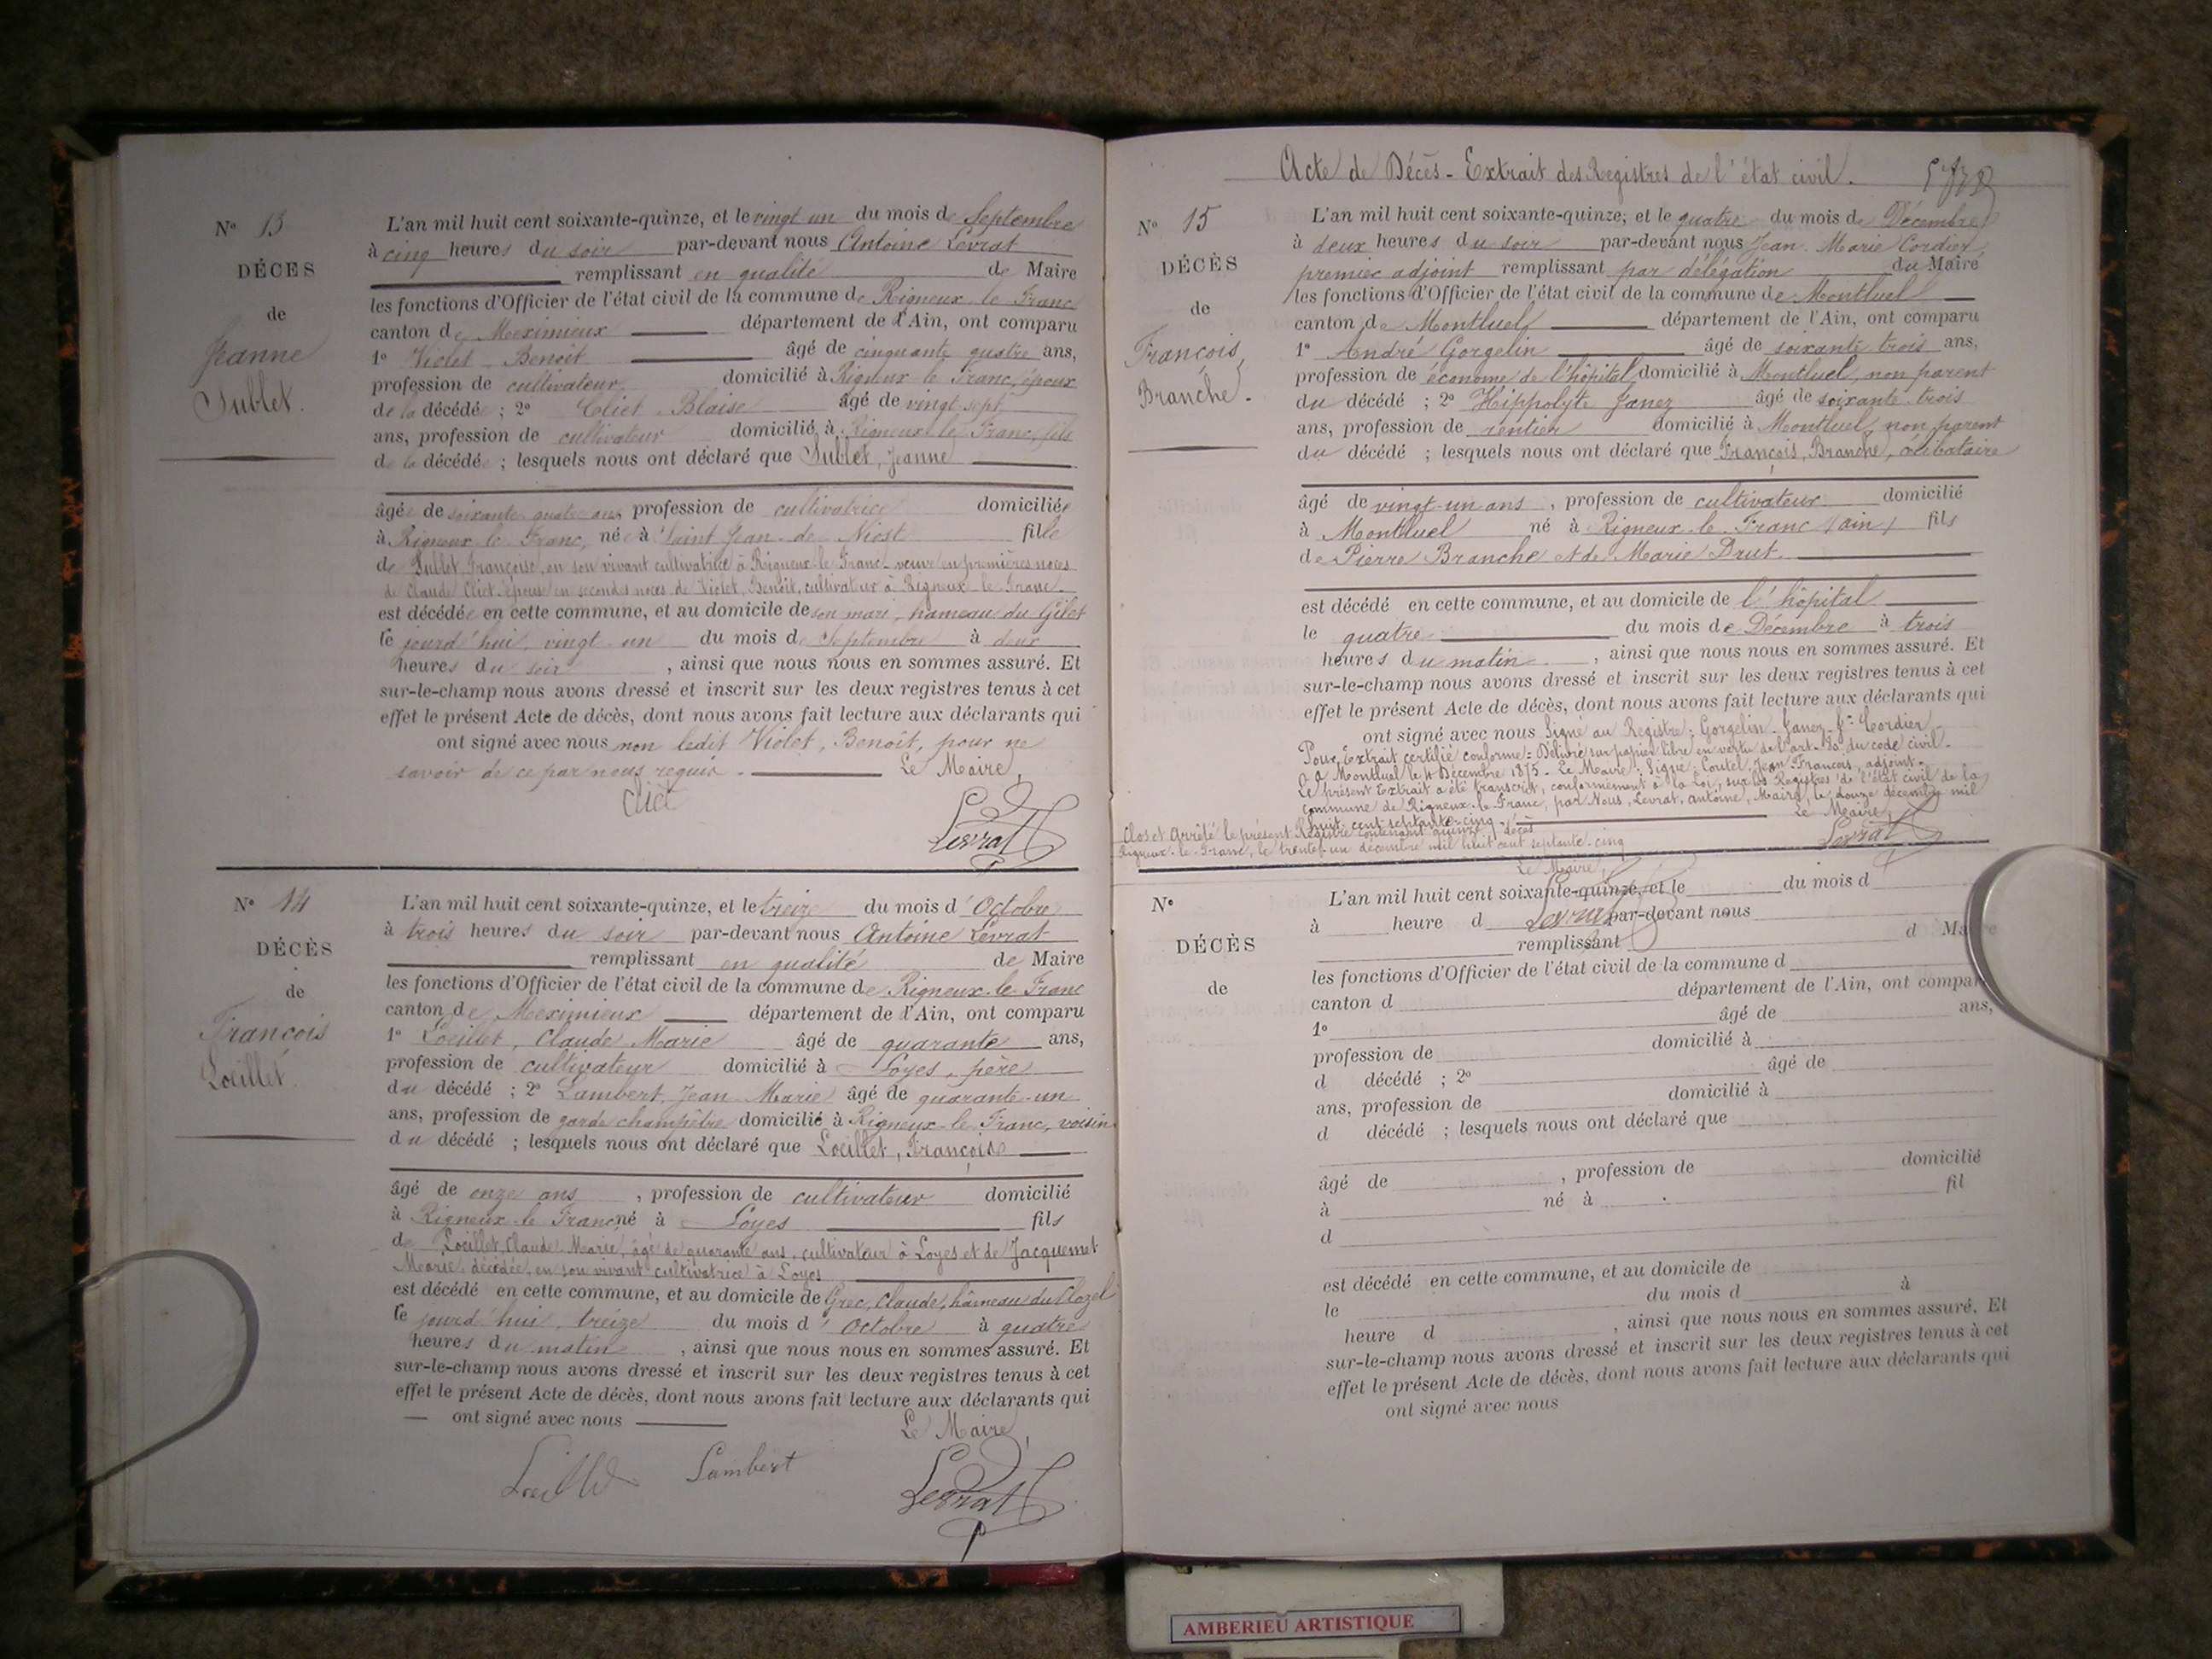 Nº 13
DÉCES
de
Jeanne
Sublet.
L'an mil huit cent soixante-quinze, et le vingt un du mois de Septembre
à cinq heures du soir par-devant nous Antoine Levrat
remplissant en qualité de Maire
les fonctions d'Officier de l'état civil de la commune de Rigneux le Franc
canton de Meximieux département de l'Ain, ont comparu
1º Violet Benoit âgé de cinquante quatre ans,
profession de cultivateur domicilié à Rigneux le Franc, époux
de la décédée ; 2º Cliet Blaise âgé de vingt sept
ans, profession de cultivateur domicilié à Rigneux le Franc, fils
de la décédée ; lesquels nous ont déclaré que Sublet, Jeanne
âgée de soixante quatre ans profession de cultivatrice domiciliée
à Rigneux le Franc, née à Saint Jean de Niost fille
de Sublet Françoise, en son vivant cultivatrice à Rigneux-le-Franc veuve en premières noces
de Claude Cliet épouse en secondes noces de Violet, Benoit, cultivateur à Rigneux le Franc
est décédée en cette commune, et au domicile de son mari, hameau du Gilet
le jourd'hui vingt un du mois de Septembre à deux
heures du soir , ainsi que nous nous en sommes assuré. Et
sur-le-champ nous avons dressé et inscrit sur les deux registres tenus à cet
effet le présent Acte de décès, dont nous avons fait lecture aux déclarants qui
ont signé avec nous non ledit Violet, Benoit, pour ne
savoir de ce par nous requis. Le Maire,
Cliet
Levrat
Nº 14
DÉCÈS
de
François
Loeillet.
L'an mil huit cent soixante-quinze, et le treize du mois d'Octobre
à trois heures du soir par-devant nous Antoine Levrat
remplissant en qualité de Maire
les fonctions d'Officier de l'état civil de la commune de Rigneux-le-Franc
canton de Meximieux département de l'Ain, ont comparu
1º Loeillet, Claude Marie âgé de quarante ans,
profession de cultivateur domicilié à Loyes, père
du décédé ; 2º Lambert, Jean Marie âgé de quarante-un
ans, profession de garde champêtre domicilié à Rigneux-le-Franc, voisin
du décédé ; lesquels nous ont déclaré que Loeillet, François
âgé de onze ans , profession de cultivateur domicilié
à Rigneux le Franc né à Loyes fils
de Loeillet, Claude Marie, âgé de quarante ans, cultivateur à Loyes et de Jacquemet
Marie, décédée, en son vivant cultivatrice à Loyes
est décédé en cette commune, et au domicile de Grec, Claude, hameau du Clozel
le jourd'hui treize du mois d'Octobre à quatre
heures du matin , ainsi que nous nous en sommes assuré. Et
sur-le-champ nous avons dressé et inscrit sur les deux registres tenus à cet
effet le présent Acte de décès, dont nous avons fait lecture aux déclarants qui
ont signé avec nous
Le Maire,
Loeillet Lambert
Levrat
Acte de Décès - Extrait des Registres de l'état civil.
Nº 15
DÉCÈS
de
François,
Branche.
L'an mil huit cent soixante-quinze, et le quatre du mois de Décembre
à deux heures du soir par-devant nous Jean Marie Cordier
premier adjoint remplissant par délégation du Maire
les fonctions d'Officier de l'état civil de la commune de Montluel
canton de Montluel département de l'Ain, ont comparu
1º André Gorgelin âgé de soixante trois ans,
profession de économe de l'hôpital domicilié à Montluel, non parent
du décédé ; 2º Hippolyte Janez âgé de soixante-trois
ans, profession de rentier domicilié à Montluel, non parent
du décédé ; lesquels nous ont déclaré que François, Branche, célibataire
âgé de vingt-un ans , profession de cultivateur domicilié
à Montluel né à Rigneux-le-Franc (ain) fils
de Pierre Branche et de Marie Drut.
est décédé en cette commune, et au domicile de l'hôpital
le quatre du mois de Décembre à trois
heures du matin , ainsi que nous nous en sommes assuré. Et
sur-le-champ nous avons dressé et inscrit sur les deux registres tenus à cet
effet le présent Acte de décès, dont nous avons fait lecture aux déclarants qui
ont signé avec nous Signé au Registre: Gorgelin - Janez - Cordier
Pour Extrait certifié conforme - Délivré sur papier libre en vertu de l'art. 80 du code civil -
à Montluel le 4 Décembre 1875 - Le Maire: Signé: Coutel Jean François, adjoint.
Le présent Extrait a été transcrit, conformément à la Loi, sur les Registres de l'état civil de la
commune de Rigneux-le-Franc, par Nous, Levrat, Antoine, Maire, le douze décembre mil
huit cent septante-cinq. Le Maire,
Levrat
Clos et Arrêté le présent Registre contenant quinze décès
Rigneux-le-Franc, le trente-un décembre mil huit cent septante-cinq
Le Maire,
Levrat
Nº
DÉCÈS
de
L'an mil huit cent soixante-quinze, et le du mois d
à heure d par-devant nous
remplissant d Maire
les fonctions d'Officier de l'état civil de la commune d
canton d département de l'Ain, ont compar
1º âgé de ans,
profession de domicilié à
d décédé ; 2º âgé de
ans, profession de domicilié à
d décédé ; lesquels nous ont déclaré que
âgé de , profession de domicilié
à né à fil
d
est décédé en cette commune, et au domicile de
le du mois d à
heure d , ainsi que nous nous en sommes assuré. Et
sur-le-champ nous avons dressé et inscrit sur les deux registres tenus à cet
effet le présent Acte de décès, dont nous avons fait lecture aux déclarants qui
ont signé avec nous
AMBERIEU ARTISTIQUE